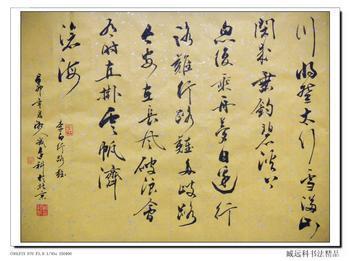 川将登太行雪满山
闲来垂钓碧溪上
忽复乘舟梦日边行
路难行路难多歧路
今安在长风破浪会
有时直挂云帆济
沧海
李白行路难
臧远科书法精品